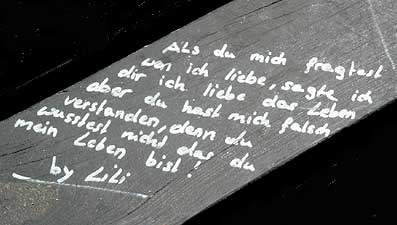 Als du mich fragtest
wen ich liebe, sagte ich
dir ich liebe das Leben
aber du hast mich falsch
verstanden, denn du
wusstest nicht das du
mein Leben bist!
by LiLi